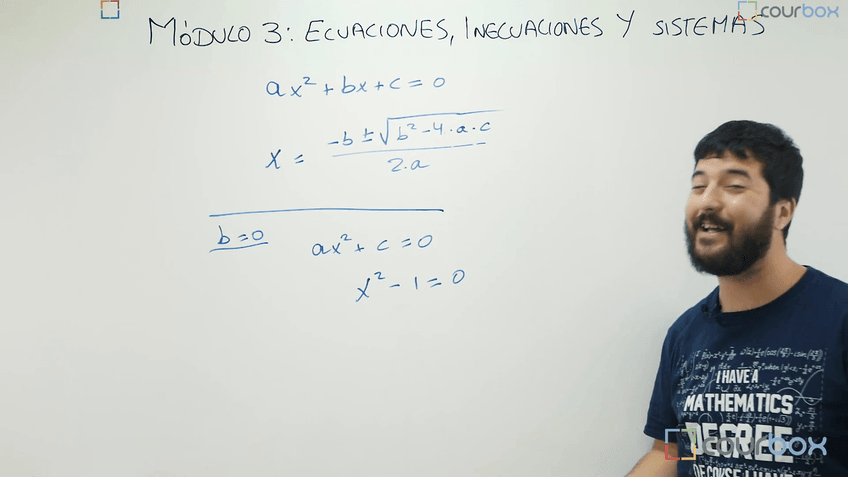 courbox
MÓDULO 3: ECUACIONES, INECUACIONES Y SISTEMAS
ax² + bx + c = 0
x = -b ± √b² - 4·a·c
2·a
b=0 ax² + c = 0
x² - 1 = 0
I HAVE A
MATHEMATICS
DEGREE
OF COURSE I HAVE
courbox